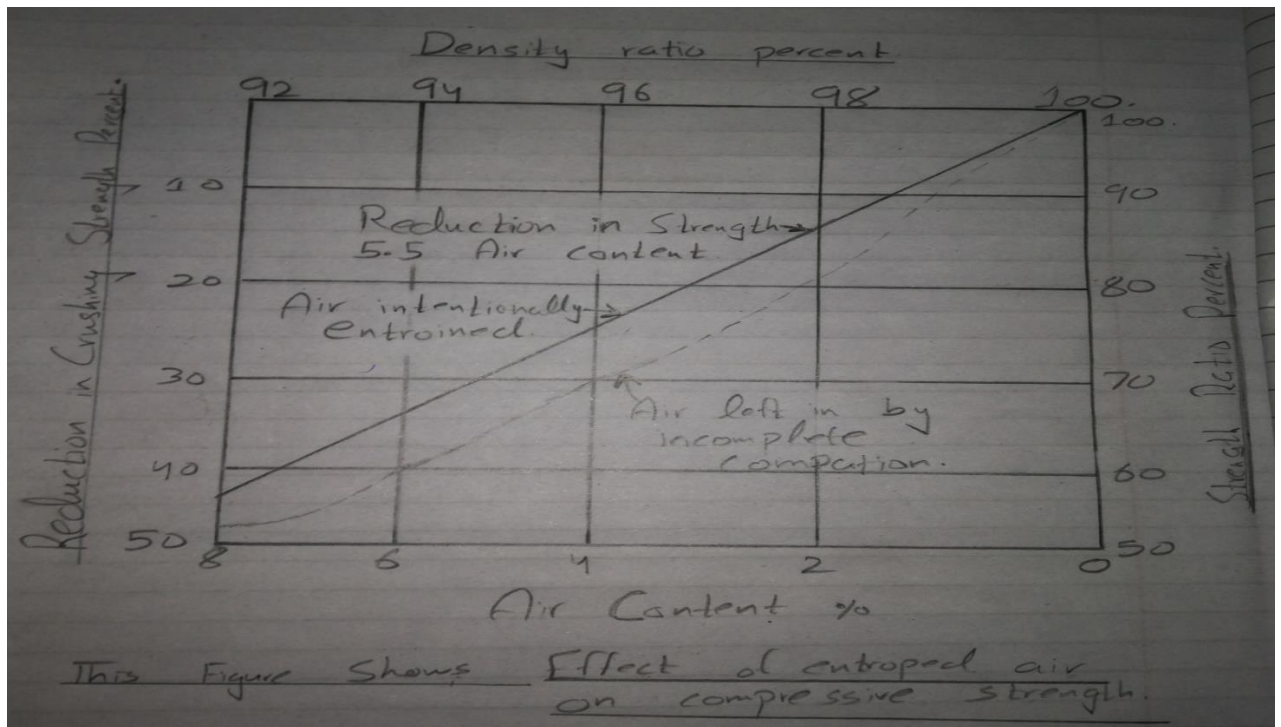 Density ratio percent
92 94 96 98 100.
100.
Reduction in Crushing Strength Percent.
10
20
30
40
50
90
80
70
60
50
Strength Ratio Percent.
Reduction in Strength
5.5 Air content
Air intentionally
entroined.
Air left in by
incomplete
compation.
8 6 4 2 0
Air Content %
This Figure Shows Effect of entroped air
on compressive strength.